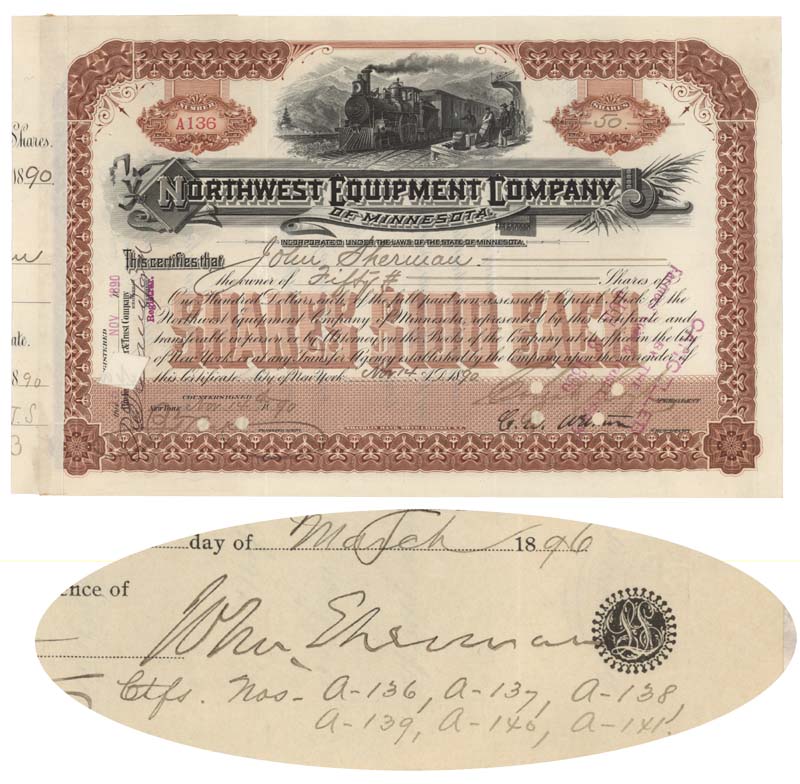 Shares.
1890
ate.
890
T.S
3
NUMBER
A136
SHARES
50
NORTHWEST EQUIPMENT COMPANY
OF MINNESOTA.
INCORPORATED UNDER THE LAWS OF THE STATE OF MINNESOTA.
This certifies that John Sherman
the owner of Fifty Shares of
One Hundred Dollars each of the full paid non assessable Capital Stock of the
Northwest Equipment Company of Minnesota, represented by this Certificate and
transferable in person or by Attorney on the Books of the Company at its office in the city
of New York or at any Transfer Agency established by the Company upon the surrender of
this certificate. City of New York Nov 14 A.D. 1890
SHARES $100 EACH
& Trust Company
NOV 1890
Registrar.
CANCELLED
COUNTERSIGNED
NEW YORK Nov 14 1890
PRESIDENT
day of March 1896
ence of
John Sherman
LS
Ctfs. Nos- A-136, A-137, A-138,
A-139, A-140, A-141.